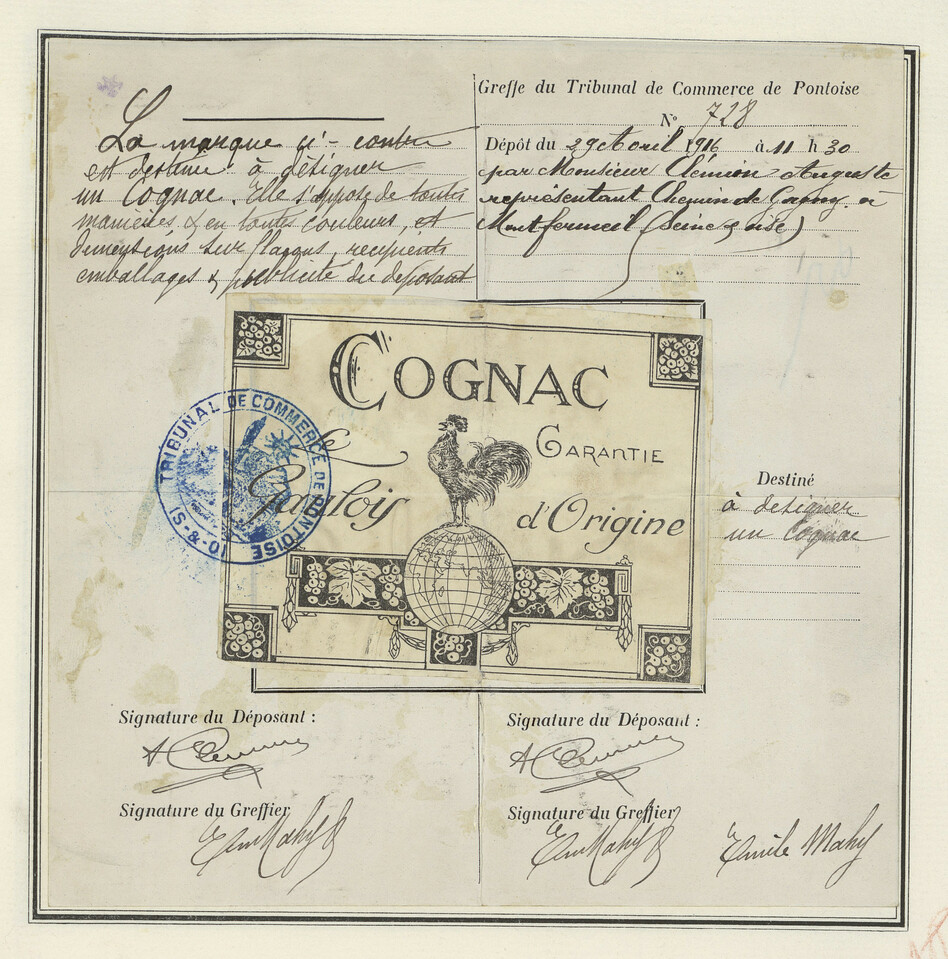 La marque ci-contre
est destinée à désigner
un Cognac. Elle s'appose de toutes
manières & en toutes couleurs, et
dimensions sur flacons, recipients
emballages & publicité du déposant
Greffe du Tribunal de Commerce de Pontoise
N° 728
Dépôt du 29 Avril 1916 à 11 h 30
par Monsieur Clémion Auguste
représentant Chemin de Gagny à
Montfermeil (Seine & Oise)
COGNAC
Le
Gaulois
GARANTIE
d'Origine
TRIBUNAL DE COMMERCE DE PONTOISE
(S.-&-O.)
Destiné
à désigner
un Cognac
Signature du Déposant :
A Clemion
Signature du Greffier
Em Mahy
Signature du Déposant :
A Clemion
Signature du Greffier
Em Mahy
Emile Mahy